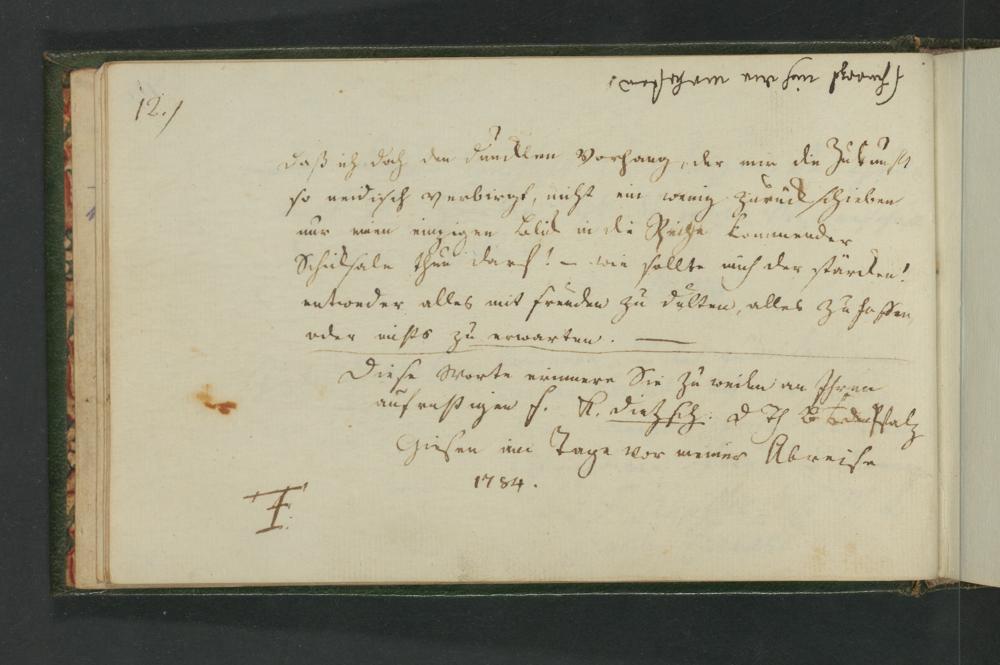 12./
Daß ich doch den dunklen Vorhang, der mir die Zukunft
so neidisch verbirgt, nicht ein wenig zurück schieben
nur einen einzigen Blick in die Reihe kommender
Schicksale thun darf! – wie sollte mich der stärken!
entweder alles mit freuden zu dulten, alles zu hoffen
oder nichts zu erwarten. —
Diese Worte erinnere Sie zu weilen an Ihren
aufrichtigen f. K. Dietzsch. d Th B
Giesen am Tage vor meiner Abreise
1784.